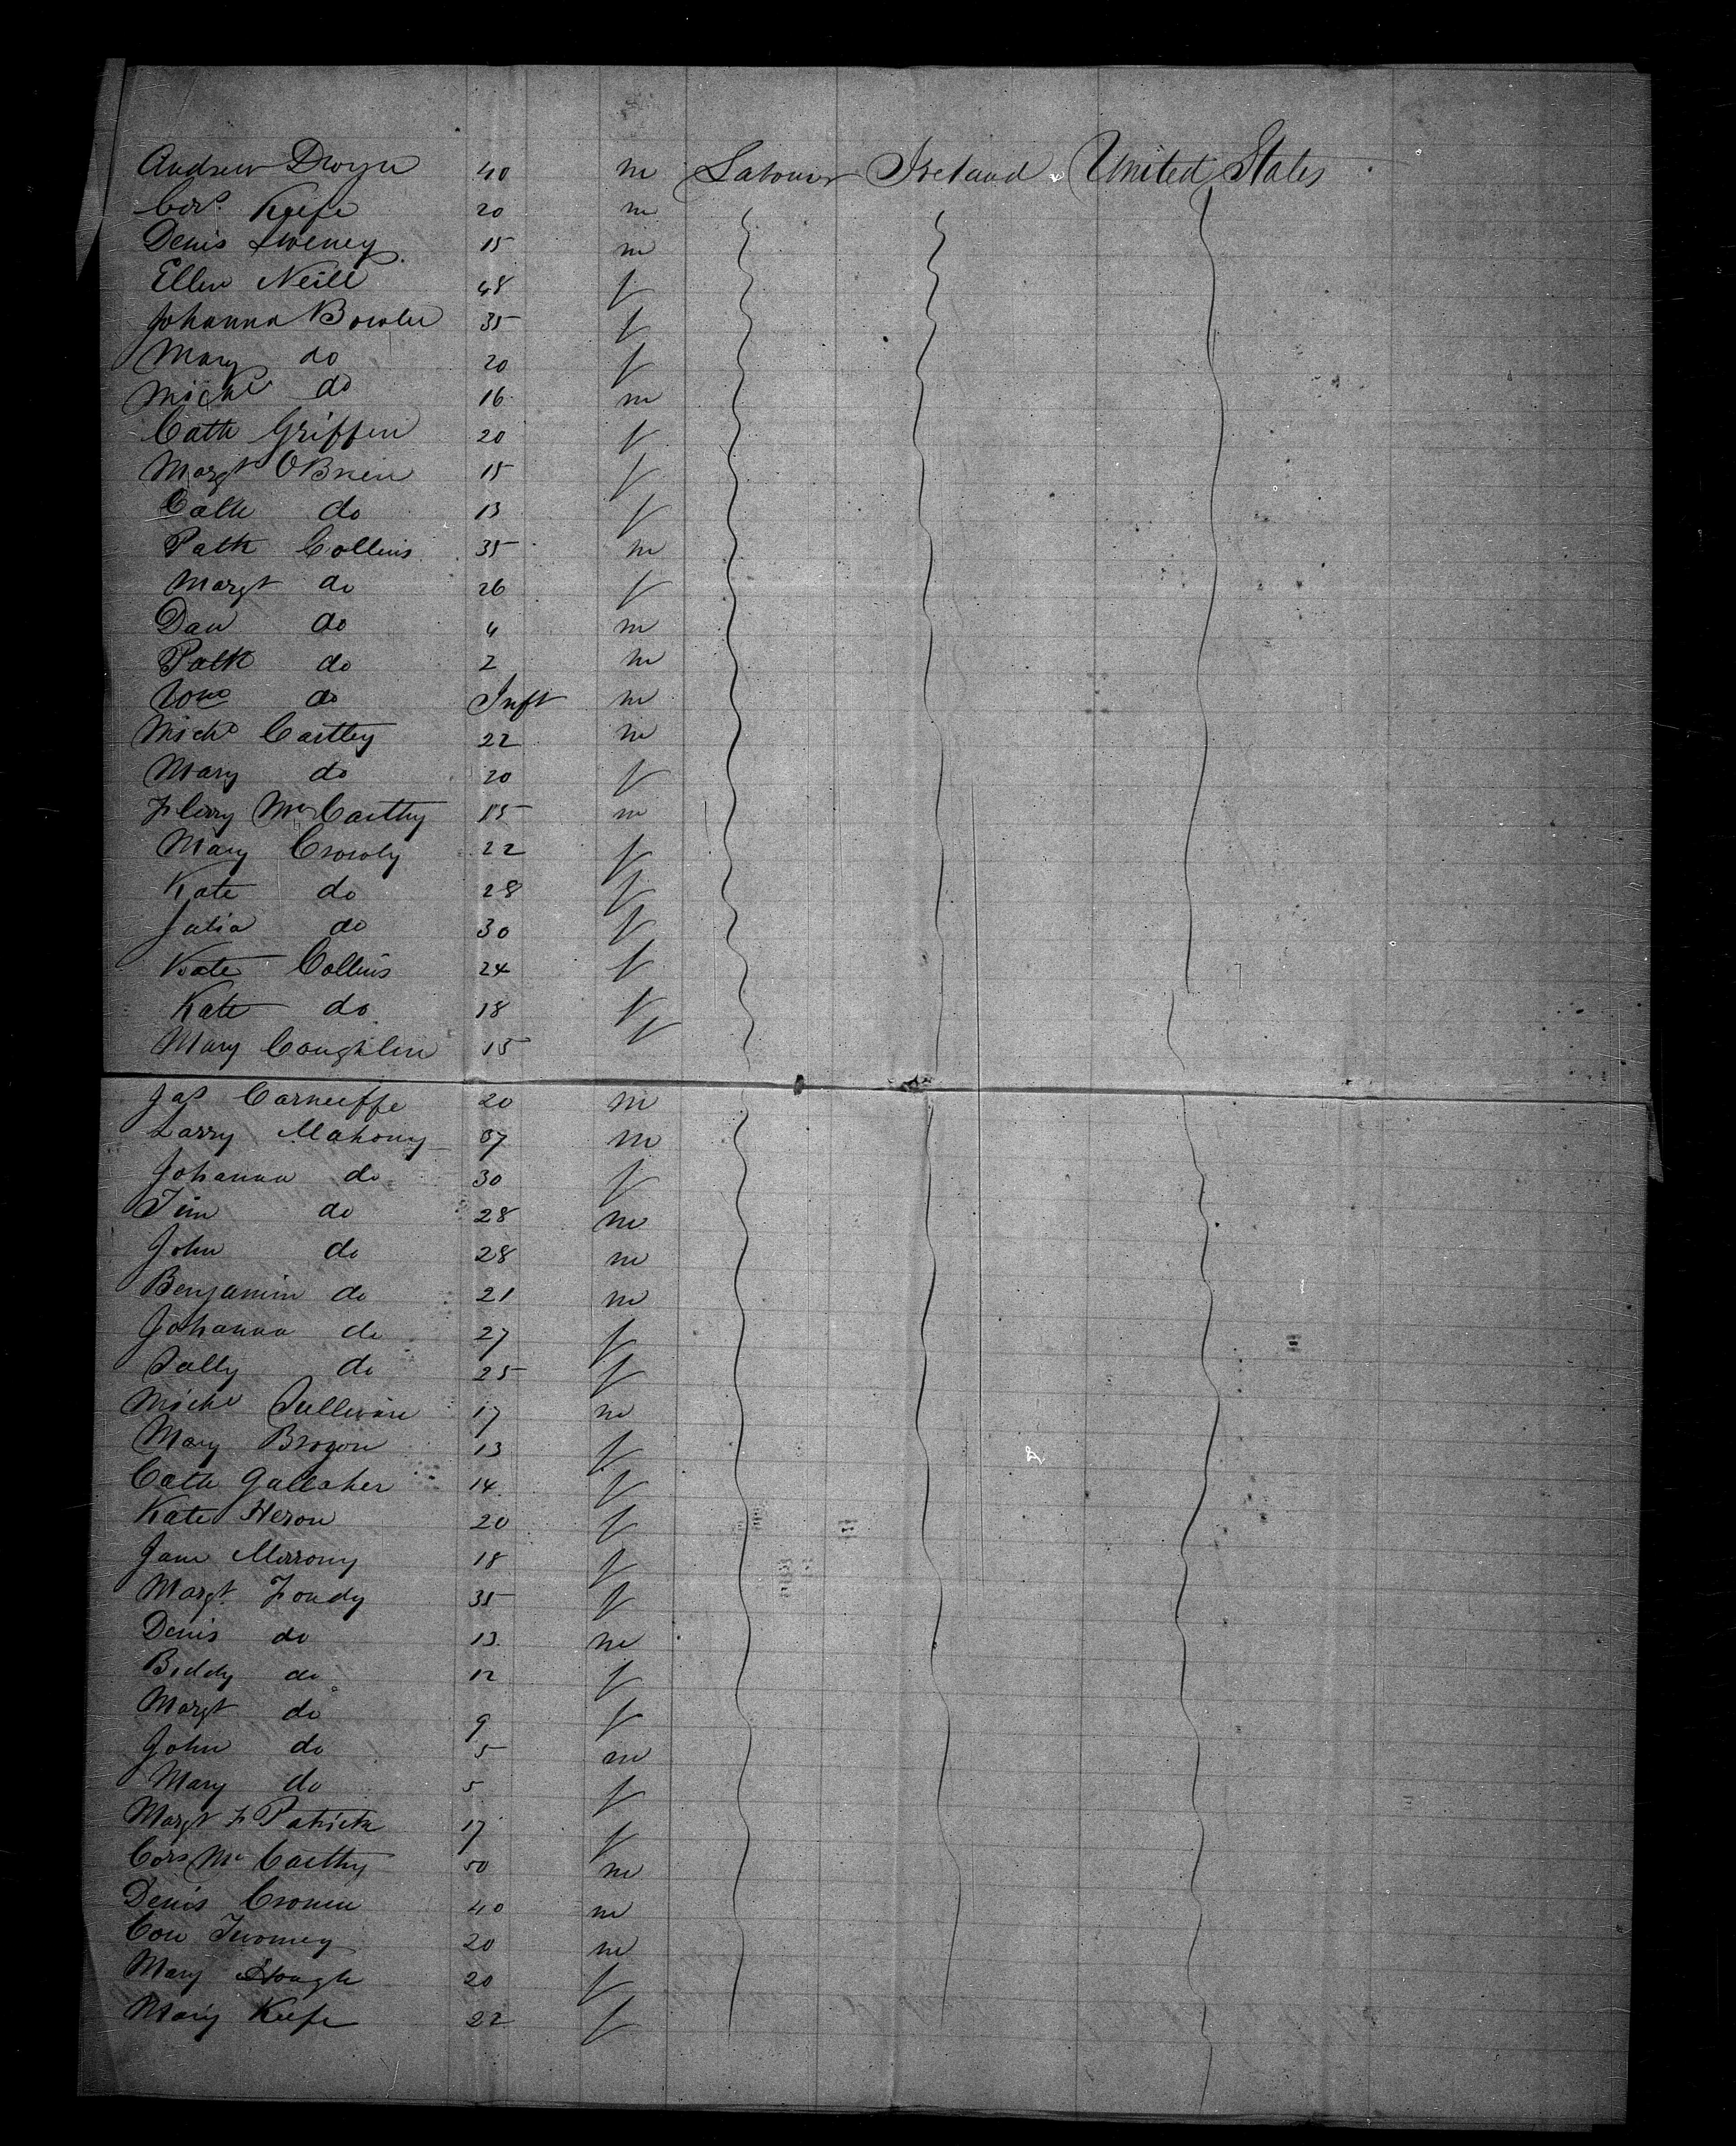 Andrew Dwyer 40 m Labourer Ireland United States
Cors Keefe 20 m
Denis Sweney 15 m
Ellen Neill 48 f
Johanna Bowler 35 f
Mary do 20 f
Michl do 16 m
Cath Griffin 20 f
Margt OBrien 15 f
Cath do 13 f
Patk Collins 35 m
Margt do 26 f
Dan do 4 m
Patk do 2 m
do Inft m
Michl Carthy 22 m
Mary do 20 f
Flerry McCarthy 15 m
Mary Crowly 22 f
Kate do 28 f
Julia do 30 f
Kate Collins 24 f
Kate do 18 f
Mary Coughlin 15 f
Jas Carneiffe 20 m
Larry Mahony 37 m
Johanna do 30 f
Tim do 28 m
John do 28 m
Benjamin do 21 m
Johanna do 27 f
Sally do 25 f
Michl Sullivan 17 m
Mary Brogon 13 f
Cath Gallaher 14 f
Kate Heron 20 f
Jane Morrony 18 f
Margt Foudy 35 f
Denis do 13 m
Biddy do 12 f
Margt do 9 f
John do 5 m
Mary do 5 f
Margt F Patrick 17 f
Cors McCarthy 50 m
Denis Cronin 40 m
Con Twomey 20 m
Mary 20 f
Mary Keefe 22 f